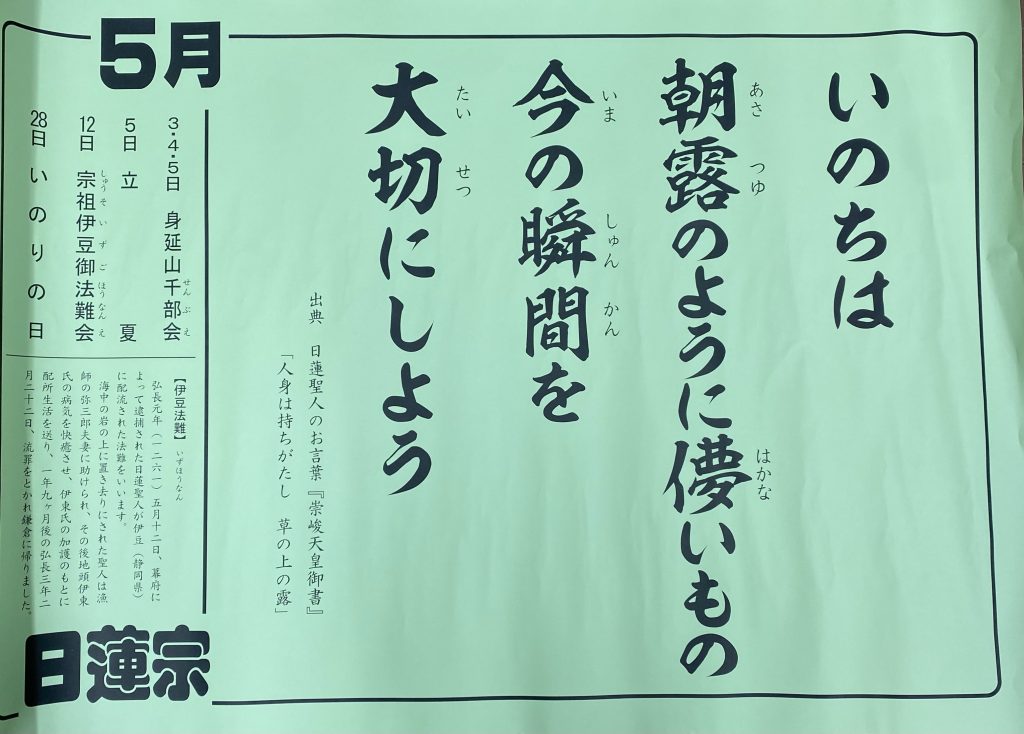 いのちは
朝露のように儚いもの
あさ つゆ はかな
今の瞬間を
いま しゅん かん
大切にしよう
たい せつ
出典 日蓮聖人のお言葉『崇峻天皇御書』
「人身は持ちがたし 草の上の露」
5月
3・4・5日 身延山千部会
せんぶえ
5日 立夏
12日 宗祖伊豆御法難会
しゅうそいずごほうなんえ
28日 いのりの日
【伊豆法難】 いずほうなん
弘長元年(一二六一)五月十二日、幕府に
よって逮捕された日蓮聖人が伊豆(静岡県)
に配流された法難をいいます。
海中の岩の上に置き去りにされた聖人は漁
師の弥三郎夫妻に助けられ、その後地頭伊東
氏の病気を快癒させ、伊東氏の加護のもとに
配所生活を送り、一年九ヶ月後の弘長三年二
月二十二日、流罪をとかれ鎌倉に帰りました。
日蓮宗